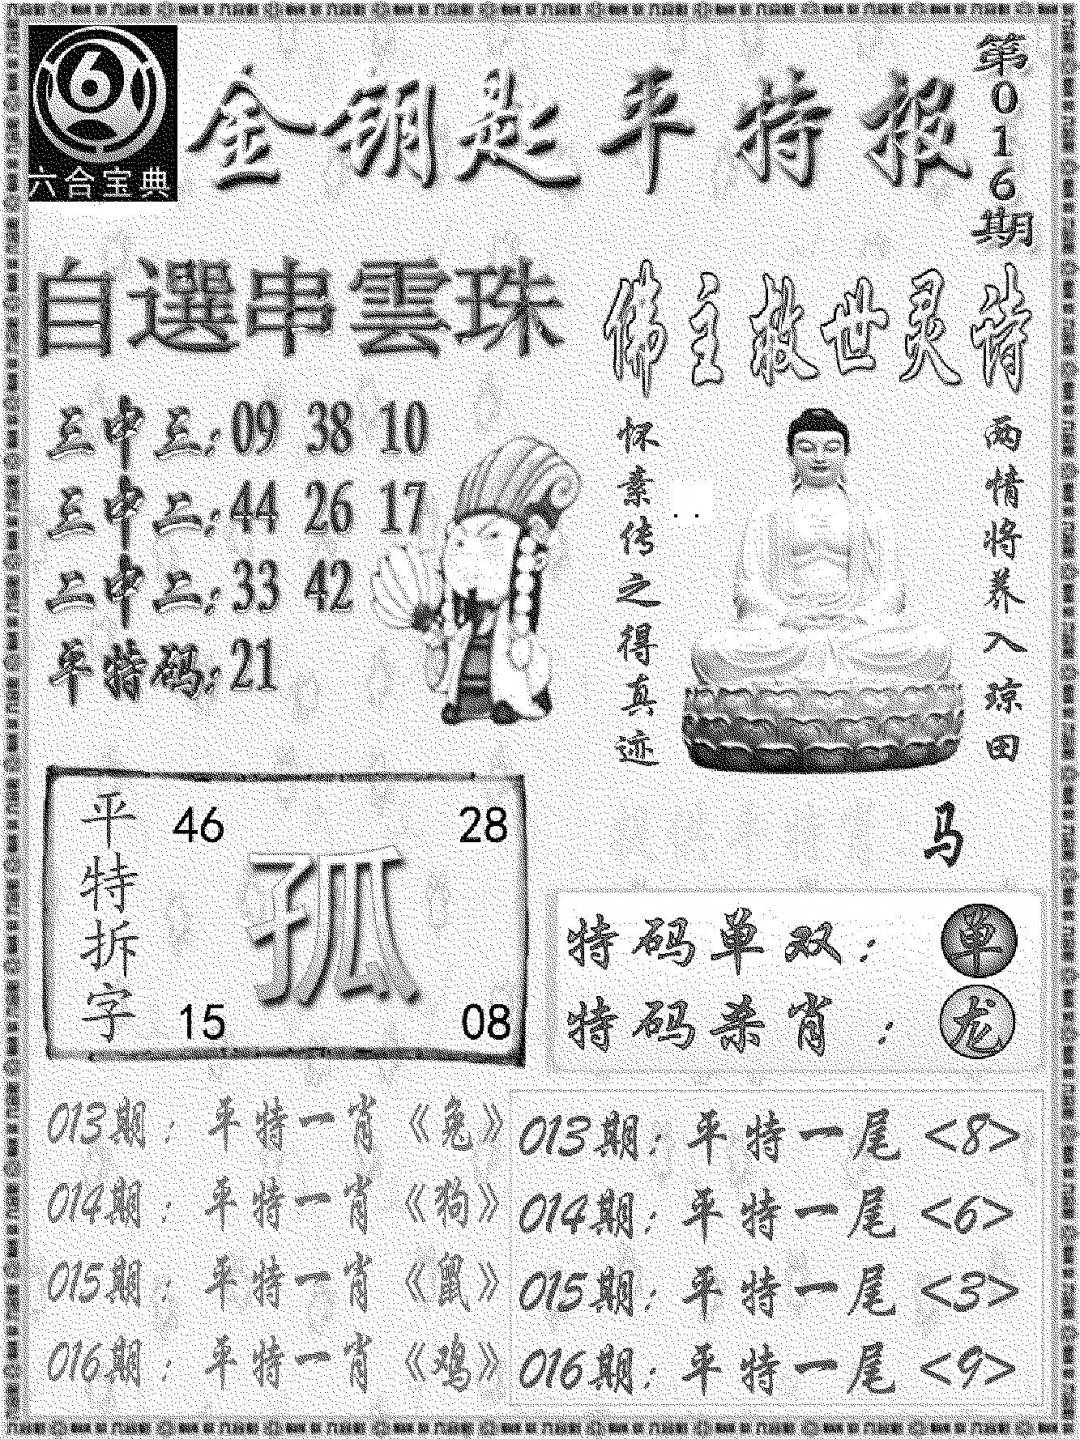 六合宝典
金钥匙平特报
第016期
自選串雲珠
三中三:09 38 10
三中二:44 26 17
二中二:33 42
单特码:21
佛主救世灵诗
怀素传之得真迹
两情将养入琼田
马
平特拆字
46 28
孤
15 08
特码单双：单
特码杀肖：龙
013期：平特一肖《兔》
014期：平特一肖《狗》
015期：平特一肖《鼠》
016期：平特一肖《鸡》
013期：平特一尾<8>
014期：平特一尾<6>
015期：平特一尾<3>
016期：平特一尾<9>